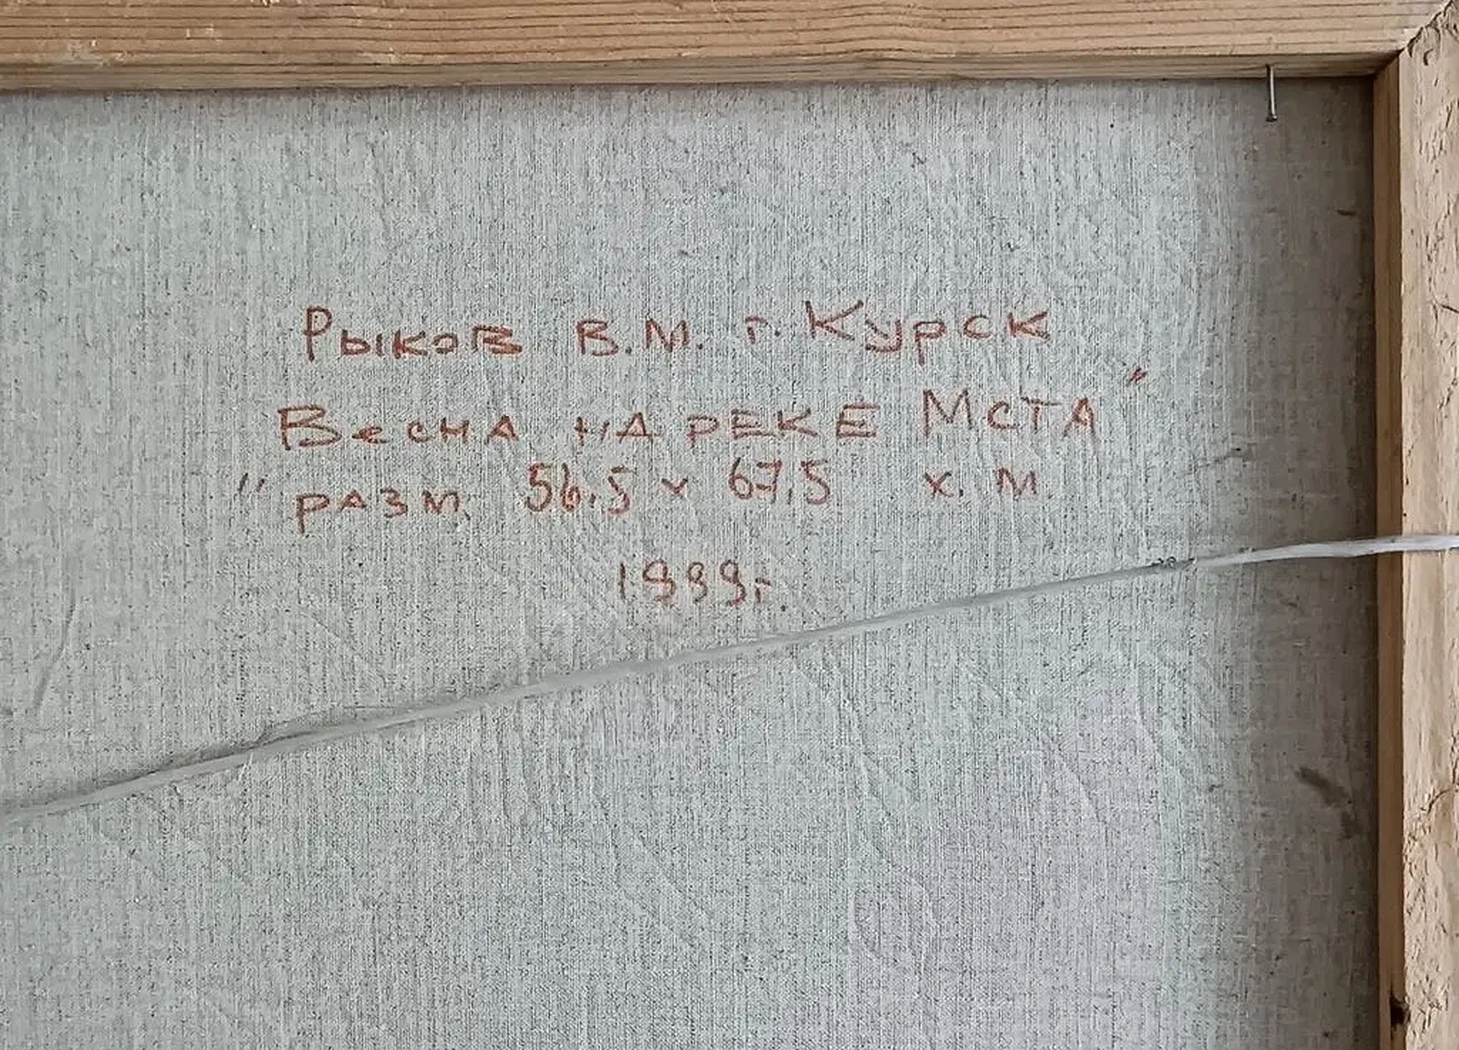 Рыков В.М. г. Курск
Весна на реке Мста"
"разм. 56.5 x 67.5 х. м.
1999г.